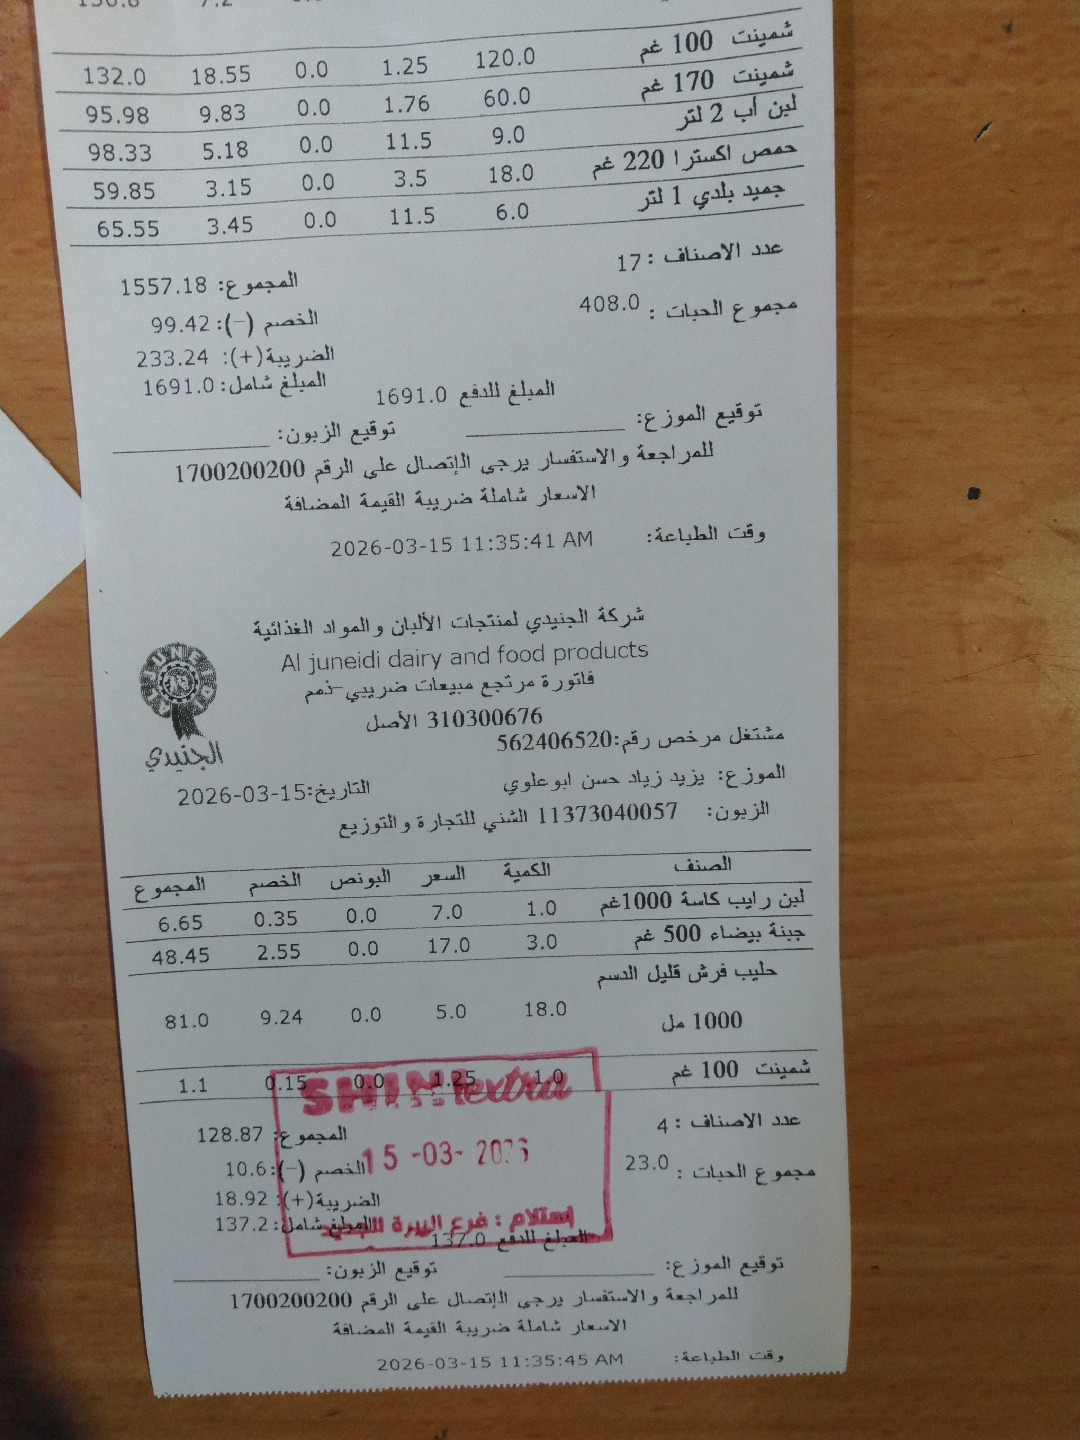 شمينت 100 غم 120.0 1.25 0.0 18.55 132.0
شمينت 170 غم 60.0 1.76 0.0 9.83 95.98
لبن أب 2 لتر 9.0 11.5 0.0 5.18 98.33
حمص اكسترا 220 غم 18.0 3.5 0.0 3.15 59.85
جميد بلدي 1 لتر 6.0 11.5 0.0 3.45 65.55
عدد الاصناف : 17 المجموع: 1557.18
مجموع الحبات : 408.0 الخصم (-): 99.42
الضريبة(+): 233.24
المبلغ للدفع 1691.0 المبلغ شامل: 1691.0
توقيع الموزع: توقيع الزبون:
للمراجعة والاستفسار يرجى الإتصال على الرقم 1700200200
الاسعار شاملة ضريبة القيمة المضافة
وقت الطباعة: 2026-03-15 11:35:41 AM
شركة الجنيدي لمنتجات الألبان والمواد الغذائية
Al juneidi dairy and food products
فاتورة مرتجع مبيعات ضريبي-ذمم
310300676 الأصل
الجنيدي
مشتغل مرخص رقم:562406520
الموزع: يزيد زياد حسن ابوعلوي التاريخ:2026-03-15
الزبون: 11373040057 الشني للتجارة والتوزيع
الصنف الكمية السعر البونص الخصم المجموع
لبن رايب كاسة 1000غم 1.0 7.0 0.0 0.35 6.65
جبنة بيضاء 500 غم 3.0 17.0 0.0 2.55 48.45
حليب فرش قليل الدسم
1000 مل 18.0 5.0 0.0 9.24 81.0
شمينت 100 غم 1.0 1.25 0.0 0.15 1.1
extra
عدد الاصناف : 4 المجموع: 128.87
15 -03- 2026
مجموع الحبات : 23.0 الخصم (-): 10.6
الضريبة(+): 18.92
إستلام : فرع البيرة الجديد
المبلغ للدفع 137.0 المبلغ شامل: 137.2
توقيع الموزع: توقيع الزبون:
للمراجعة والاستفسار يرجى الإتصال على الرقم 1700200200
الاسعار شاملة ضريبة القيمة المضافة
وقت الطباعة: 2026-03-15 11:35:45 AM